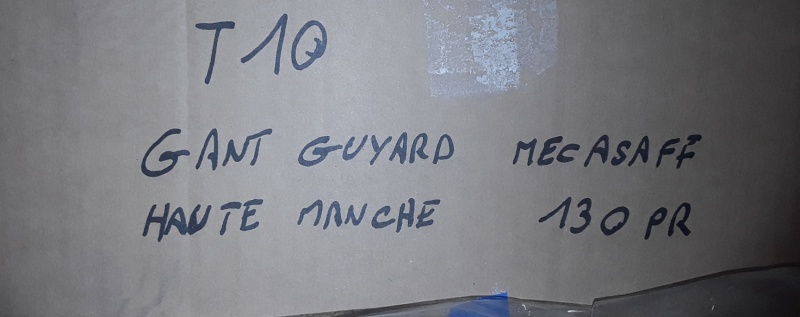 T10
GANT GUYARD MECASAFF
HAUTE MANCHE 130 PR